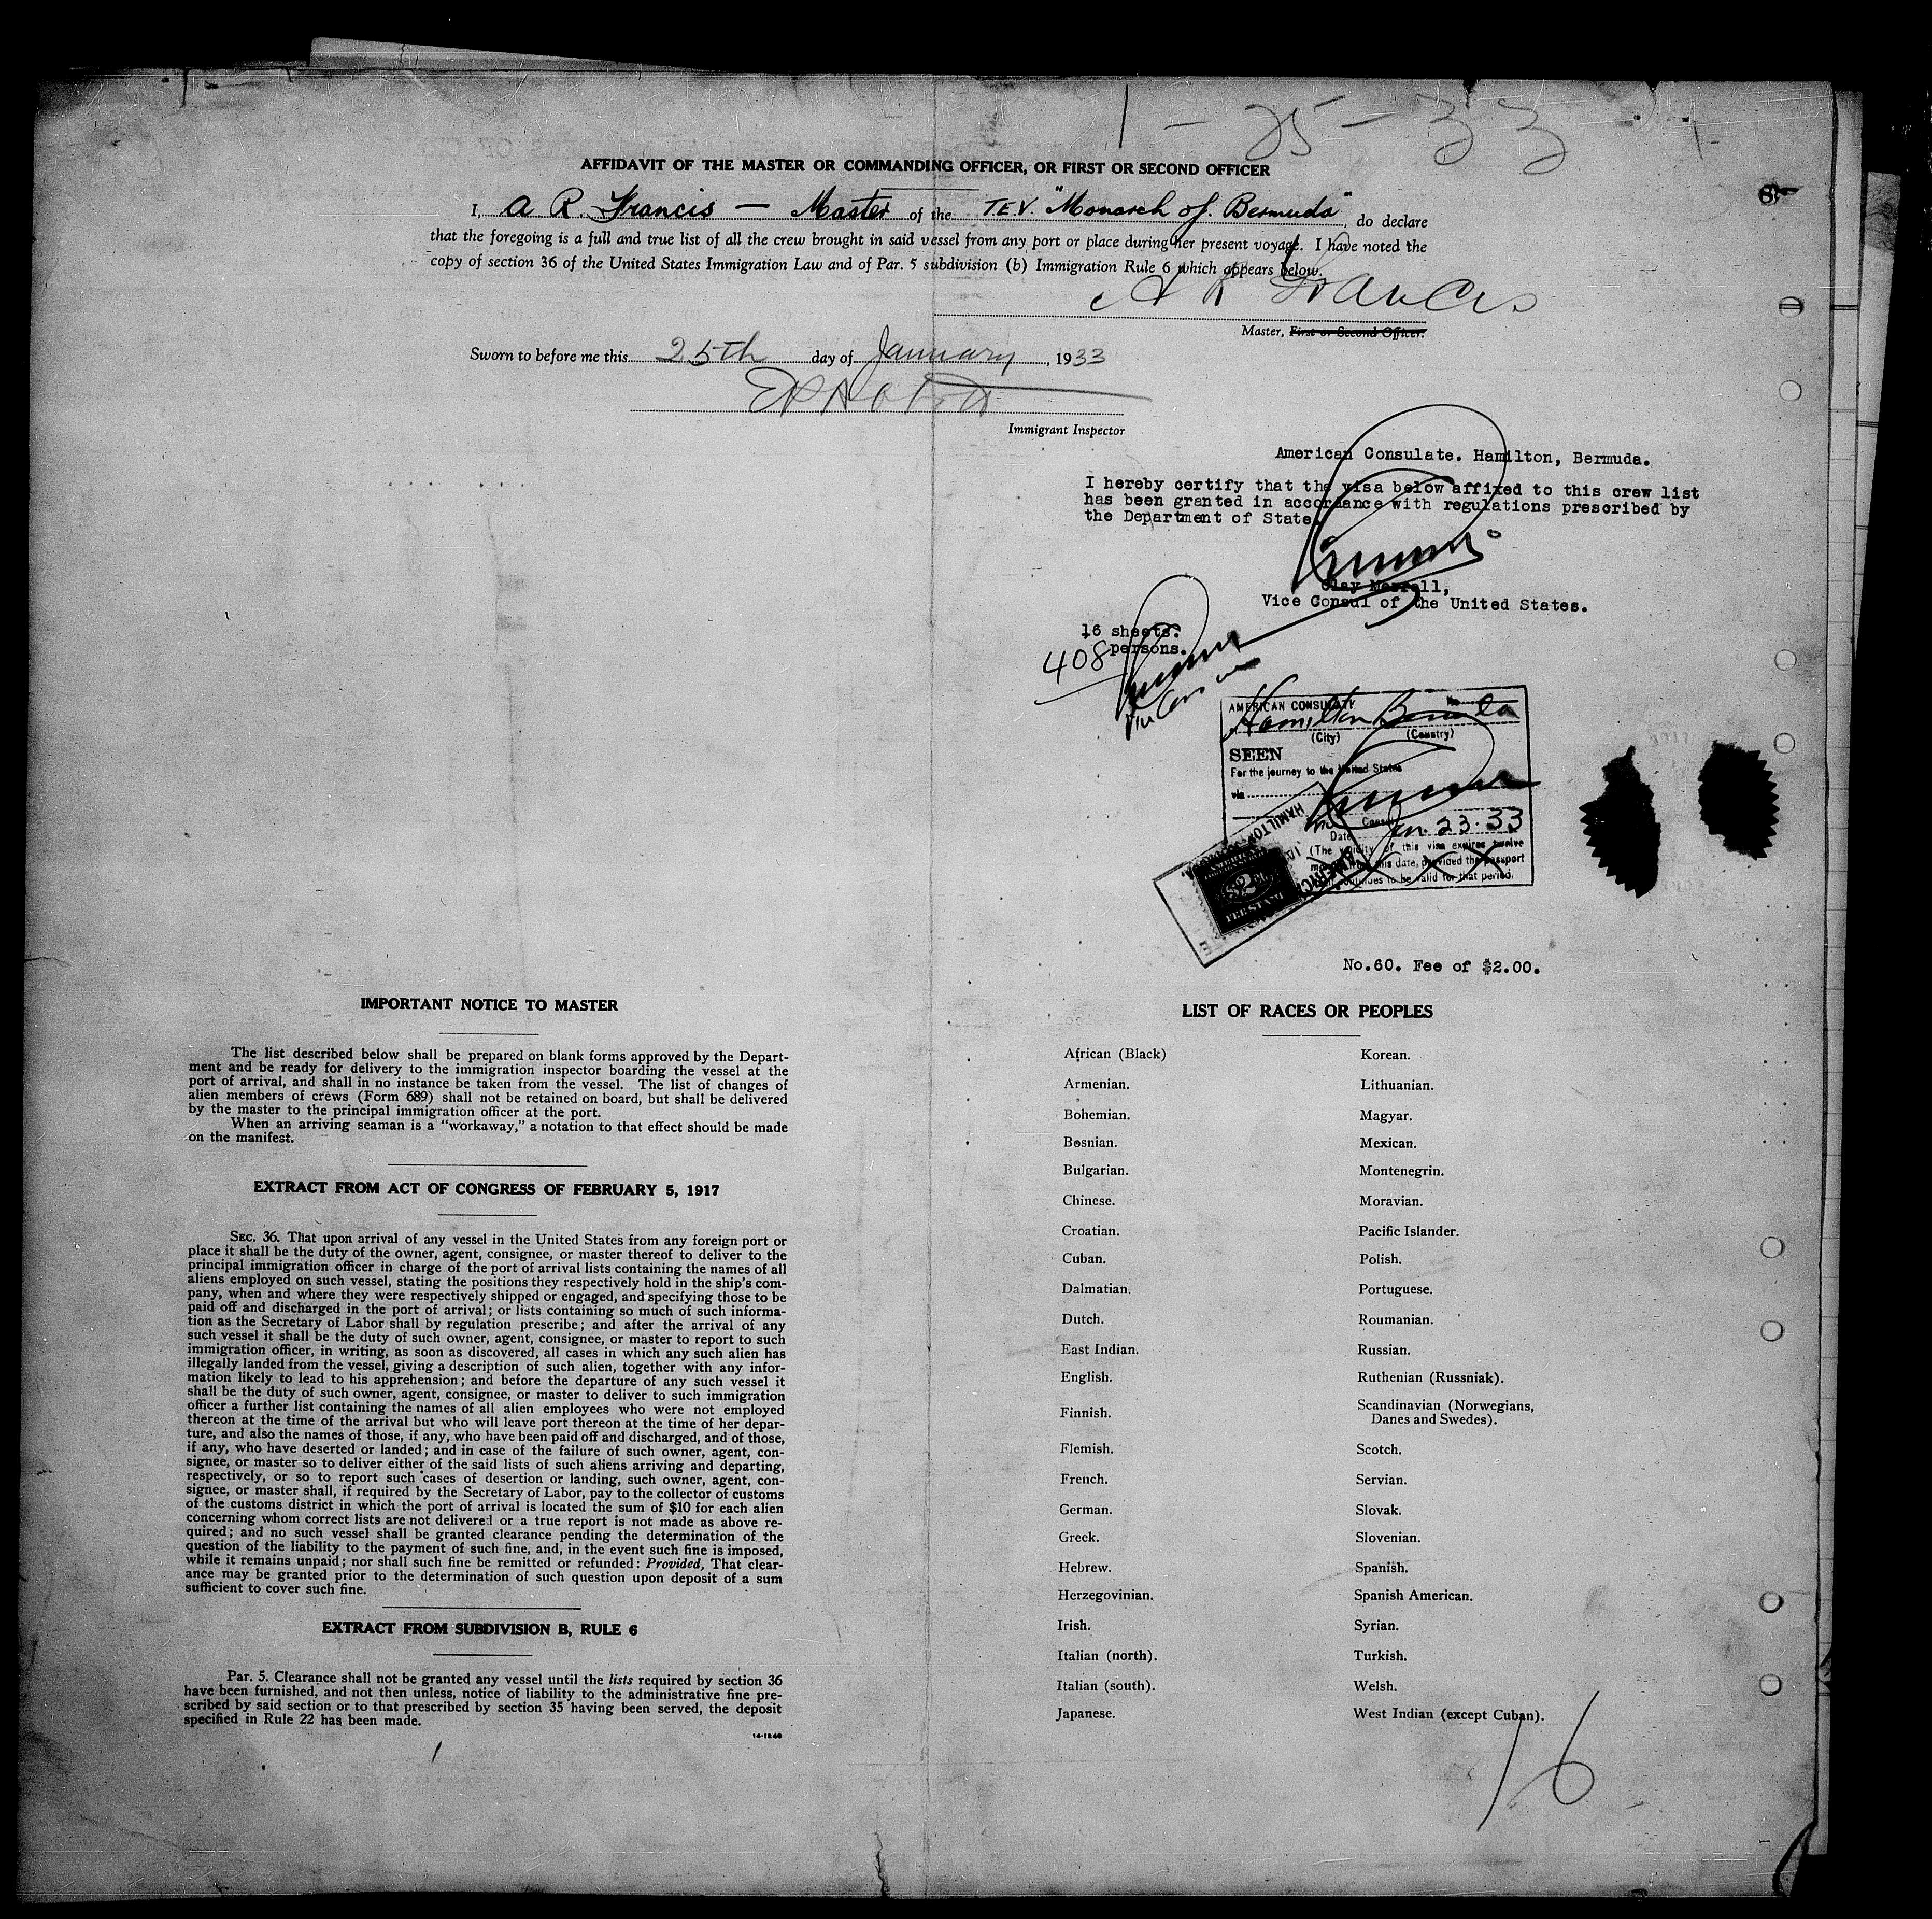 1-25-33
AFFIDAVIT OF THE MASTER OR COMMANDING OFFICER, OR FIRST OR SECOND OFFICER
I, A R. Francis — Master of the T.E.V. "Monarch of Bermuda", do declare
that the foregoing is a full and true list of all the crew brought in said vessel from any port or place during her present voyage. I have noted the
copy of section 36 of the United States Immigration Law and of Par. 5 subdivision (b) Immigration Rule 6 which appears below.
A R Francis
Master, First or Second Officer.
Sworn to before me this 25th day of January, 1933
Immigrant Inspector
American Consulate. Hamilton, Bermuda.
I hereby certify that the visa below affixed to this crew list
has been granted in accordance with regulations prescribed by
the Department of State.
Clay Merrell,
Vice Consul of the United States.
16 sheets.
408 persons.
AMERICAN CONSULATE No.
Hamilton Bermuda
(City) (Country)
SEEN
For the journey to the United States
via
Consul
Date Jan. 23.33
(The validity of this visa expires twelve
months from this date, provided the passport
continues to be valid for that period.
HAMILTON
AMERIC
$2
FEE STAMP
No.60. Fee of $2.00.
IMPORTANT NOTICE TO MASTER
The list described below shall be prepared on blank forms approved by the Depart-
ment and be ready for delivery to the immigration inspector boarding the vessel at the
port of arrival, and shall in no instance be taken from the vessel. The list of changes of
alien members of crews (Form 689) shall not be retained on board, but shall be delivered
by the master to the principal immigration officer at the port.
When an arriving seaman is a "workaway," a notation to that effect should be made
on the manifest.
EXTRACT FROM ACT OF CONGRESS OF FEBRUARY 5, 1917
SEC. 36. That upon arrival of any vessel in the United States from any foreign port or
place it shall be the duty of the owner, agent, consignee, or master thereof to deliver to the
principal immigration officer in charge of the port of arrival lists containing the names of all
aliens employed on such vessel, stating the positions they respectively hold in the ship's com-
pany, when and where they were respectively shipped or engaged, and specifying those to be
paid off and discharged in the port of arrival; or lists containing so much of such informa-
tion as the Secretary of Labor shall by regulation prescribe; and after the arrival of any
such vessel it shall be the duty of such owner, agent, consignee, or master to report to such
immigration officer, in writing, as soon as discovered, all cases in which any such alien has
illegally landed from the vessel, giving a description of such alien, together with any infor-
mation likely to lead to his apprehension; and before the departure of any such vessel it
shall be the duty of such owner, agent, consignee, or master to deliver to such immigration
officer a further list containing the names of all alien employees who were not employed
thereon at the time of the arrival but who will leave port thereon at the time of her depar-
ture, and also the names of those, if any, who have been paid off and discharged, and of those,
if any, who have deserted or landed; and in case of the failure of such owner, agent, con-
signee, or master so to deliver either of the said lists of such aliens arriving and departing,
respectively, or so to report such cases of desertion or landing, such owner, agent, con-
signee, or master shall, if required by the Secretary of Labor, pay to the collector of customs
of the customs district in which the port of arrival is located the sum of $10 for each alien
concerning whom correct lists are not delivered or a true report is not made as above re-
quired; and no such vessel shall be granted clearance pending the determination of the
question of the liability to the payment of such fine, and, in the event such fine is imposed,
while it remains unpaid; nor shall such fine be remitted or refunded: Provided, That clear-
ance may be granted prior to the determination of such question upon deposit of a sum
sufficient to cover such fine.
EXTRACT FROM SUBDIVISION B, RULE 6
Par. 5. Clearance shall not be granted any vessel until the lists required by section 36
have been furnished, and not then unless, notice of liability to the administrative fine pre-
scribed by said section or to that prescribed by section 35 having been served, the deposit
specified in Rule 22 has been made.
14-1240
LIST OF RACES OR PEOPLES
African (Black)
Armenian.
Bohemian.
Bosnian.
Bulgarian.
Chinese.
Croatian.
Cuban.
Dalmatian.
Dutch.
East Indian.
English.
Finnish.
Flemish.
French.
German.
Greek.
Hebrew.
Herzegovinian.
Irish.
Italian (north).
Italian (south).
Japanese.
Korean.
Lithuanian.
Magyar.
Mexican.
Montenegrin.
Moravian.
Pacific Islander.
Polish.
Portuguese.
Roumanian.
Russian.
Ruthenian (Russniak).
Scandinavian (Norwegians,
Danes and Swedes).
Scotch.
Servian.
Slovak.
Slovenian.
Spanish.
Spanish American.
Syrian.
Turkish.
Welsh.
West Indian (except Cuban).
16